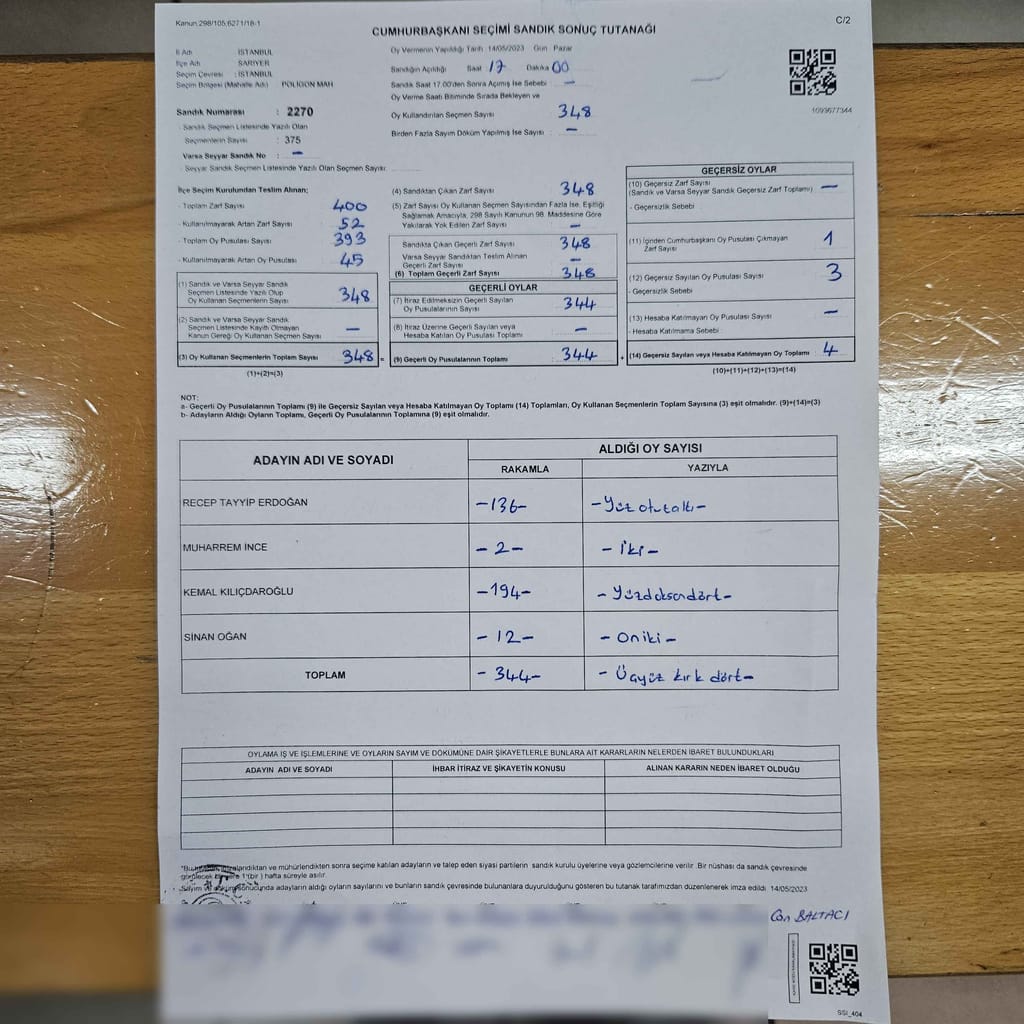 Kanun 298/105,6271/18-1
C/2
CUMHURBAŞKANI SEÇİMİ SANDIK SONUÇ TUTANAĞI
İl Adı : İSTANBUL
İlçe Adı : SARIYER
Seçim Çevresi : İSTANBUL
Seçim Bölgesi (Mahalle Adı) : POLİGON MAH
Sandık Numarası : 2270
- Sandık Seçmen Listesinde Yazılı Olan
Seçmenlerin Sayısı : 375
Varsa Seyyar Sandık No : –
- Seyyar Sandık Seçmen Listesinde Yazılı Olan Seçmen Sayısı:
Oy Vermenin Yapıldığı Tarih 14/05/2023 Gün Pazar
Sandığın Açıldığı Saat 17 Dakika 00
Sandık Saat 17.00'den Sonra Açılmış İse Sebebi : –
Oy Verme Saati Bitiminde Sırada Bekleyen ve
Oy Kullandırılan Seçmen Sayısı : 348
Birden Fazla Sayım Döküm Yapılmış İse Sayısı : –
1093677344
İlçe Seçim Kurulundan Teslim Alınan;
- Toplam Zarf Sayısı : 400
- Kullanılmayarak Artan Zarf Sayısı : 52
- Toplam Oy Pusulası Sayısı : 393
- Kullanılmayarak Artan Oy Pusulası : 45
(1) Sandık ve Varsa Seyyar Sandık
Seçmen Listesinde Yazılı Olup
Oy Kullanan Seçmenlerin Sayısı 348
(2) Sandık ve Varsa Seyyar Sandık
Seçmen Listesinde Kayıtlı Olmayan
Kanun Gereği Oy Kullanan Seçmen Sayısı –
(3) Oy Kullanan Seçmenlerin Toplam Sayısı 348 =
(1)+(2)=(3)
(4) Sandıktan Çıkan Zarf Sayısı : 348
(5) Zarf Sayısı Oy Kullanan Seçmen Sayısından Fazla İse, Eşitliği
Sağlamak Amacıyla, 298 Sayılı Kanunun 98. Maddesine Göre
Yakılarak Yok Edilen Zarf Sayısı : –
Sandıkta Çıkan Geçerli Zarf Sayısı : 348
Varsa Seyyar Sandıktan Teslim Alınan
Geçerli Zarf Sayısı : –
(6) Toplam Geçerli Zarf Sayısı : 348
GEÇERLİ OYLAR
(7) İtiraz Edilmeksizin Geçerli Sayılan
Oy Pusulalarının Sayısı : 344
(8) İtiraz Üzerine Geçerli Sayılan veya
Hesaba Katılan Oy Pusulası Toplamı : –
(9) Geçerli Oy Pusulalarının Toplamı 344 +
GEÇERSİZ OYLAR
(10) Geçersiz Zarf Sayısı
(Sandık ve Varsa Seyyar Sandık Geçersiz Zarf Toplamı) –
- Geçersizlik Sebebi :
(11) İçinden Cumhurbaşkanı Oy Pusulası Çıkmayan
Zarf Sayısı : 1
(12) Geçersiz Sayılan Oy Pusulası Sayısı : 3
- Geçersizlik Sebebi :
(13) Hesaba Katılmayan Oy Pusulası Sayısı : –
- Hesaba Katılmama Sebebi :
(14) Geçersiz Sayılan veya Hesaba Katılmayan Oy Toplamı 4
(10)+(11)+(12)+(13)=(14)
NOT:
a- Geçerli Oy Pusulalarının Toplamı (9) ile Geçersiz Sayılan veya Hesaba Katılmayan Oy Toplamı (14) Toplamları, Oy Kullanan Seçmenlerin Toplam Sayısına (3) eşit olmalıdır. (9)+(14)=(3)
b- Adayların Aldığı Oyların Toplamı, Geçerli Oy Pusulalarının Toplamına (9) eşit olmalıdır.
ADAYIN ADI VE SOYADI ALDIĞI OY SAYISI
RAKAMLA YAZIYLA
RECEP TAYYİP ERDOĞAN -136- -Yüz otuz altı-
MUHARREM İNCE -2- -İki-
KEMAL KILIÇDAROĞLU -194- -Yüzdoksandört-
SİNAN OĞAN -12- -Oniki-
TOPLAM -344- -Üçyüz kırk dört-
OYLAMA İŞ VE İŞLEMLERİNE VE OYLARIN SAYIM VE DÖKÜMÜNE DAİR ŞİKAYETLERLE BUNLARA AİT KARARLARIN NELERDEN İBARET BULUNDUKLARI
ADAYIN ADI VE SOYADI İHBAR İTİRAZ VE ŞİKAYETİN KONUSU ALINAN KARARIN NEDEN İBARET OLDUĞU
imzalandıktan ve mühürlendikten sonra seçime katılan adayların ve talep eden siyasi partilerin sandık kurulu üyelerine veya gözlemcilerine verilir. Bir nüshası da sandık çevresinde
1 (bir) hafta süreyle asılır.
Sayım ve döküm sonucunda adayların aldığı oyların sayılarını ve bunların sandık çevresinde bulunanlara duyurulduğunu gösteren bu tutanak tarafımızdan düzenlenerek imza edildi. 14/05/2023
Can BALTACI
SSİ_404